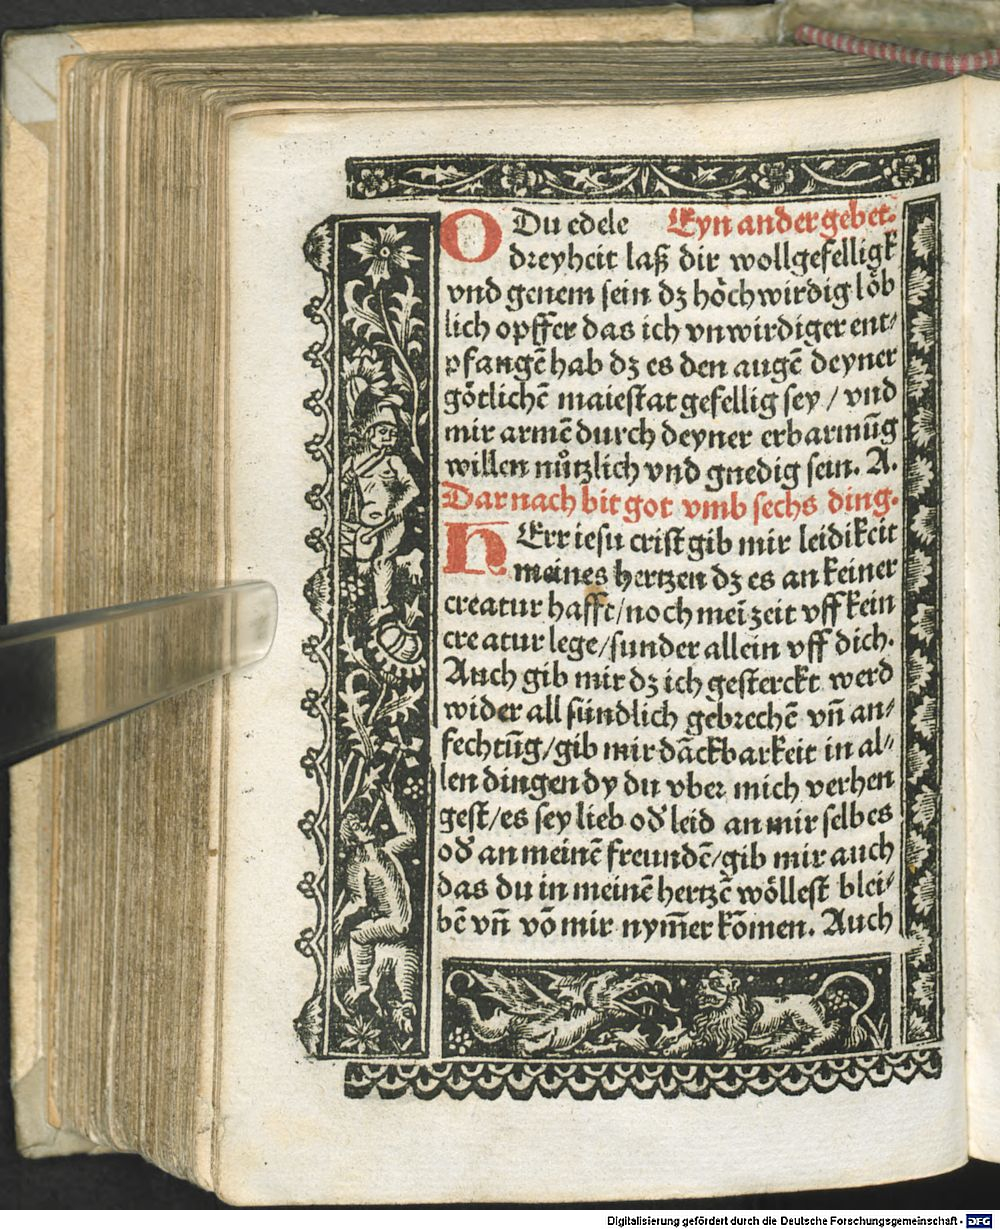 O Du edele Eyn ander gebet.
dreyheit laß dir wollgefelligk
vnd genem sein dz höchwirdig löb
lich opffer das ich vnwirdiger ent⸗
pfangē hab dz es den augē deyner
götlichē maiestat gefellig sey / vnd
mir armē durch deyner erbarmūg
willen nůtzlich vnd gnedig sein. A.
Darnach bit got vmb sechs ding.
HErr iesu crist gib mir leidikeit
meines hertzen dz es an keiner
creatur hafft/noch meī zeit vff kein
creatur lege/sunder allein vff dich.
Auch gib mir dz ich gesterckt werd
wider all sündlich gebrechē vn̄ an⸗
fechtūg/gib mir dāckbarkeit in al⸗
len dingen dy du vber mich verhen
gest/es sey lieb od̕ leid an mir selbes
od̕ an meinē freundē/gib mir auch
das du in meinē hertzē wöllest blei⸗
bē vn̄ vō mir nym̄er kōmen. Auch
Digitalisierung gefördert durch die Deutsche Forschungsgemeinschaft - DFG